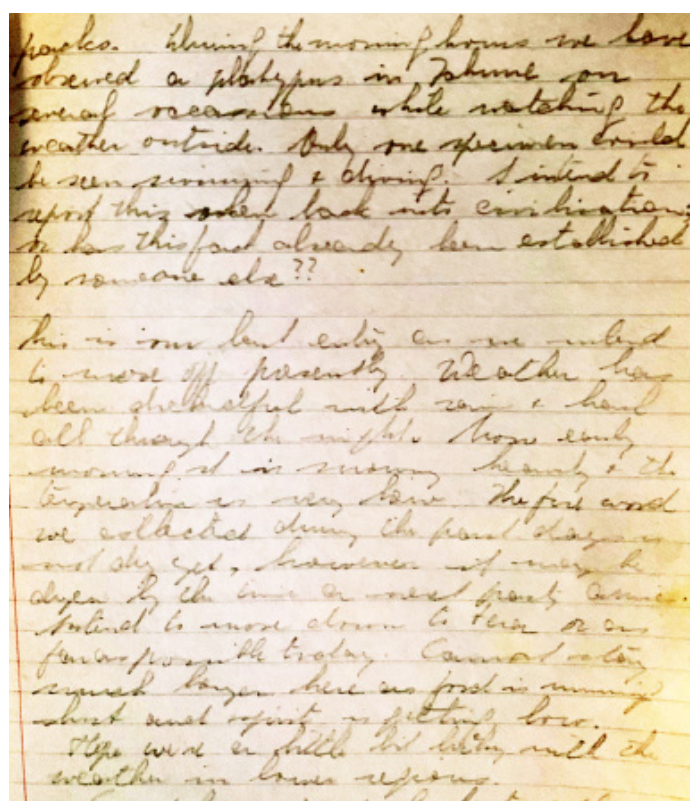 packs. During the morning hours we have
observed a platypus in Tahune on
several occassions while watching the
weather outside. Only one specimen could
be seen swimming & diving. I intend to
report this when back into civilisation,
or has this fact already been established
by someone else??
This is our last entry as we intend
to move off presently. Weather has
been dreadful with rain & hail
all through the night. Now early
morning it is snowing heavily & the
temperature is very low. The fire wood
we collected during the past days is
not dry yet, however it may be
dryer by the time a next party comes.
Intend to move down to or as
far as possible today. Cannot stay
much longer here as food is running
short and spirit is getting low.
Hope we're a little bit lucky with the
weather in lower regions.